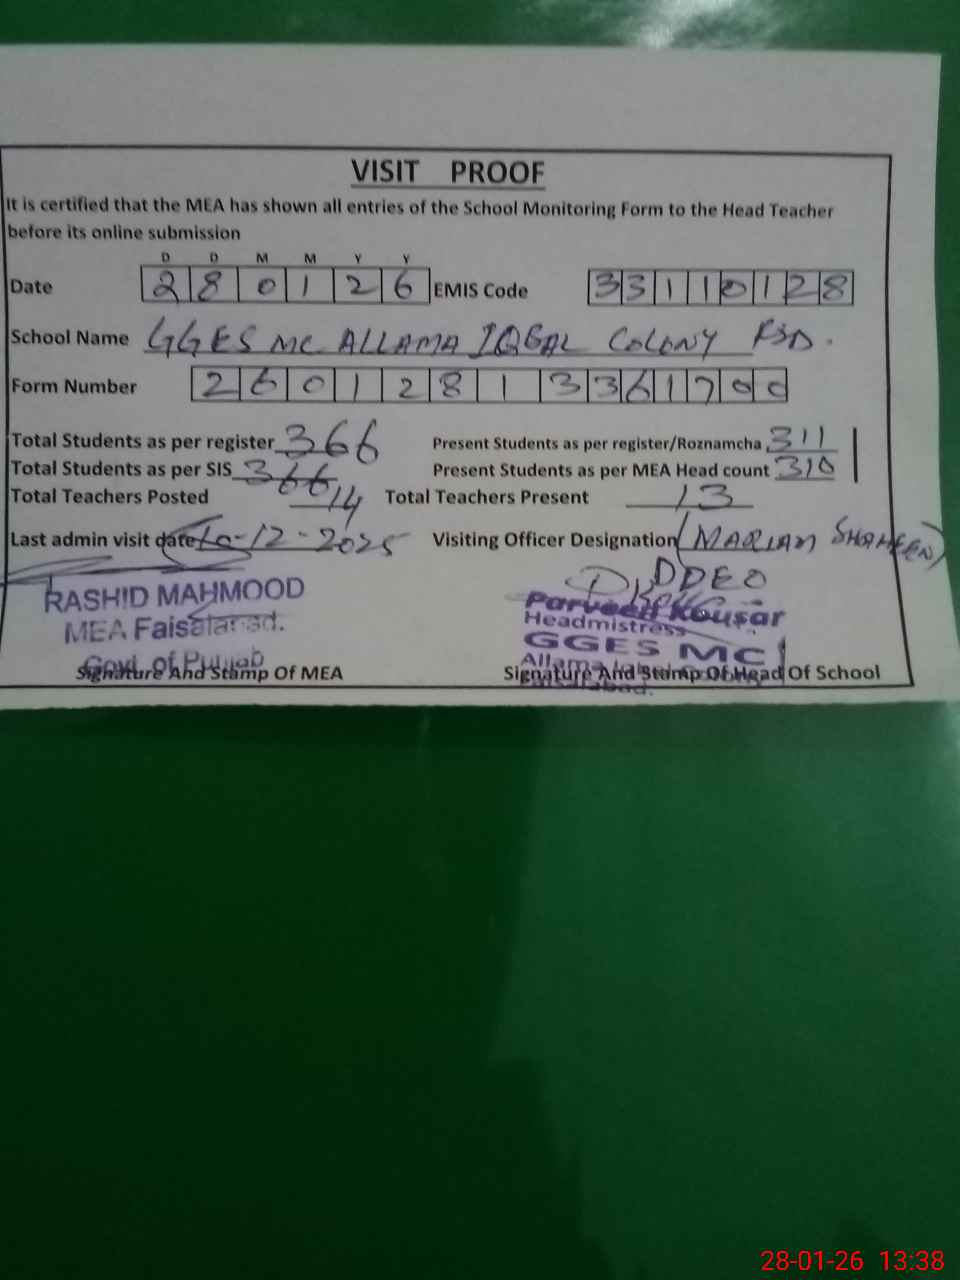 VISIT PROOF
It is certified that the MEA has shown all entries of the School Monitoring Form to the Head Teacher
before its online submission
D D M M Y Y
Date 2 8 0 1 2 6 EMIS Code 3 3 1 1 0 1 2 8
School Name GGES MC ALLAMA IQBAL COLONY FSD.
Form Number 2 6 0 1 2 8 1 3 3 6 1 7 0 0
Total Students as per register 366 Present Students as per register/Roznamcha 311
Total Students as per SIS 366 Present Students as per MEA Head count 310
Total Teachers Posted 14 Total Teachers Present 13
Last admin visit date 10-12-2025 Visiting Officer Designation (MARIAM SHAHEEN)
DDEO
RASHID MAHMOOD
MEA Faisalabad.
Govt. of Punjab
Signature And Stamp Of MEA
Parveen Kousar
Headmistress
GGES MC
Allama Iqbal Colony
Faisalabad.
Signature And Stamp Of Head Of School
28-01-26 13:38